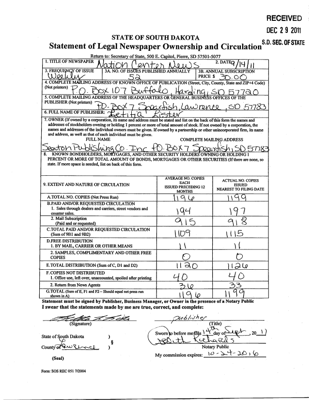 RECEIVED
DEC 29 2011
S.D. SEC. OF STATE
STATE OF SOUTH DAKOTA
Statement of Legal Newspaper Ownership and Circulation
Return to: Secretary of State, 500 E. Capitol, Pierre, SD 57501-5077
1. TITLE OF NEWSPAPER Nation Center News
2. DATE
3. FREQUENCY OF ISSUE Weekly
3A. NO. OF ISSUES PUBLISHED ANNUALLY 52
3B. ANNUAL SUBSCRIPTION PRICE $ 30.00
4. COMPLETE MAILING ADDRESS OF KNOWN OFFICE OF PUBLICATION (Street, City, County, State and ZIP+4 Code)
(Not printers) P.O. Box 107 Buffalo, Harding, SD 57720
5. COMPLETE MAILING ADDRESS OF THE HEADQUARTERS OR GENERAL BUSINESS OFFICES OF THE
PUBLISHER (Not printer) P.O. Box 7 Spearfish, Lawrence, SD 57783
6. FULL NAME OF PUBLISHER: Letitia Lister
7. OWNER (If owned by a corporation, its name and address must be stated and list on the back of this form the names and
addresses of stockholders owning or holding 1 percent or more of total amount of stock. If not owned by a corporation, the
names and addresses of the individual owners must be given. If owned by a partnership or other unincorporated firm, its name
and address, as well as that of each individual must be given.
FULL NAME
COMPLETE MAILING ADDRESS
Seaton Publishing Co. Inc P.O. Box 7 Spearfish, SD 57783
8. KNOWN BONDHOLDERS, MORTGAGES, AND OTHER SECURITY HOLDERS OWNING OR HOLDING 1
PERCENT OR MORE OF TOTAL AMOUNT OF BONDS, MORTGAGES OR OTHER SECURITIES (If there are none, so
state. If more space is needed, list on back of this form.
9. EXTENT AND NATURE OF CIRCULATION
AVERAGE NO. COPIES EACH ISSUED PRECEDING 12 MONTHS
ACTUAL NO. COPIES ISSUED NEAREST TO FILING DATE
A. TOTAL NO. COPIES (Net Press Run) 1196 1199
B. PAID AND/OR REQUESTED CIRCULATION
1. Sales through dealers and carriers, street vendors and counter sales. 194 197
2. Mail Subscription (Paid and or requested) 915 918
C. TOTAL PAID AND/OR REQUESTED CIRCULATION (Sum of 9B1 and 9B2) 1109 1115
D. FREE DISTRIBUTION
1. BY MAIL, CARRIER OR OTHER MEANS 11 11
2. SAMPLES, COMPLIMENTARY AND OTHER FREE COPIES 0 0
E. TOTAL DISTRIBUTION (Sum of C, D1 and D2) 1120 1126
F. COPIES NOT DISTRIBUTED
1. Office use, left over, unaccounted, spoiled after printing 40 40
2. Return from News Agents 36 33
G. TOTAL (Sum of E, F1 and F2 - Should equal net press run shown in A) 1196 1199
Statement must be signed by Publisher, Business Manager, or Owner in the presence of a Notary Public
I swear that the statements made by me are true, correct, and complete:
Publisher
(Signature)
(Title)
State of South Dakota )
) §
County of Lawrence )
Sworn to before me this 14th day of Sept, 2011
Richards
Notary Public
My commission expires: 10-24-2016
(Seal)
Form: SOS REC 051 7/2004